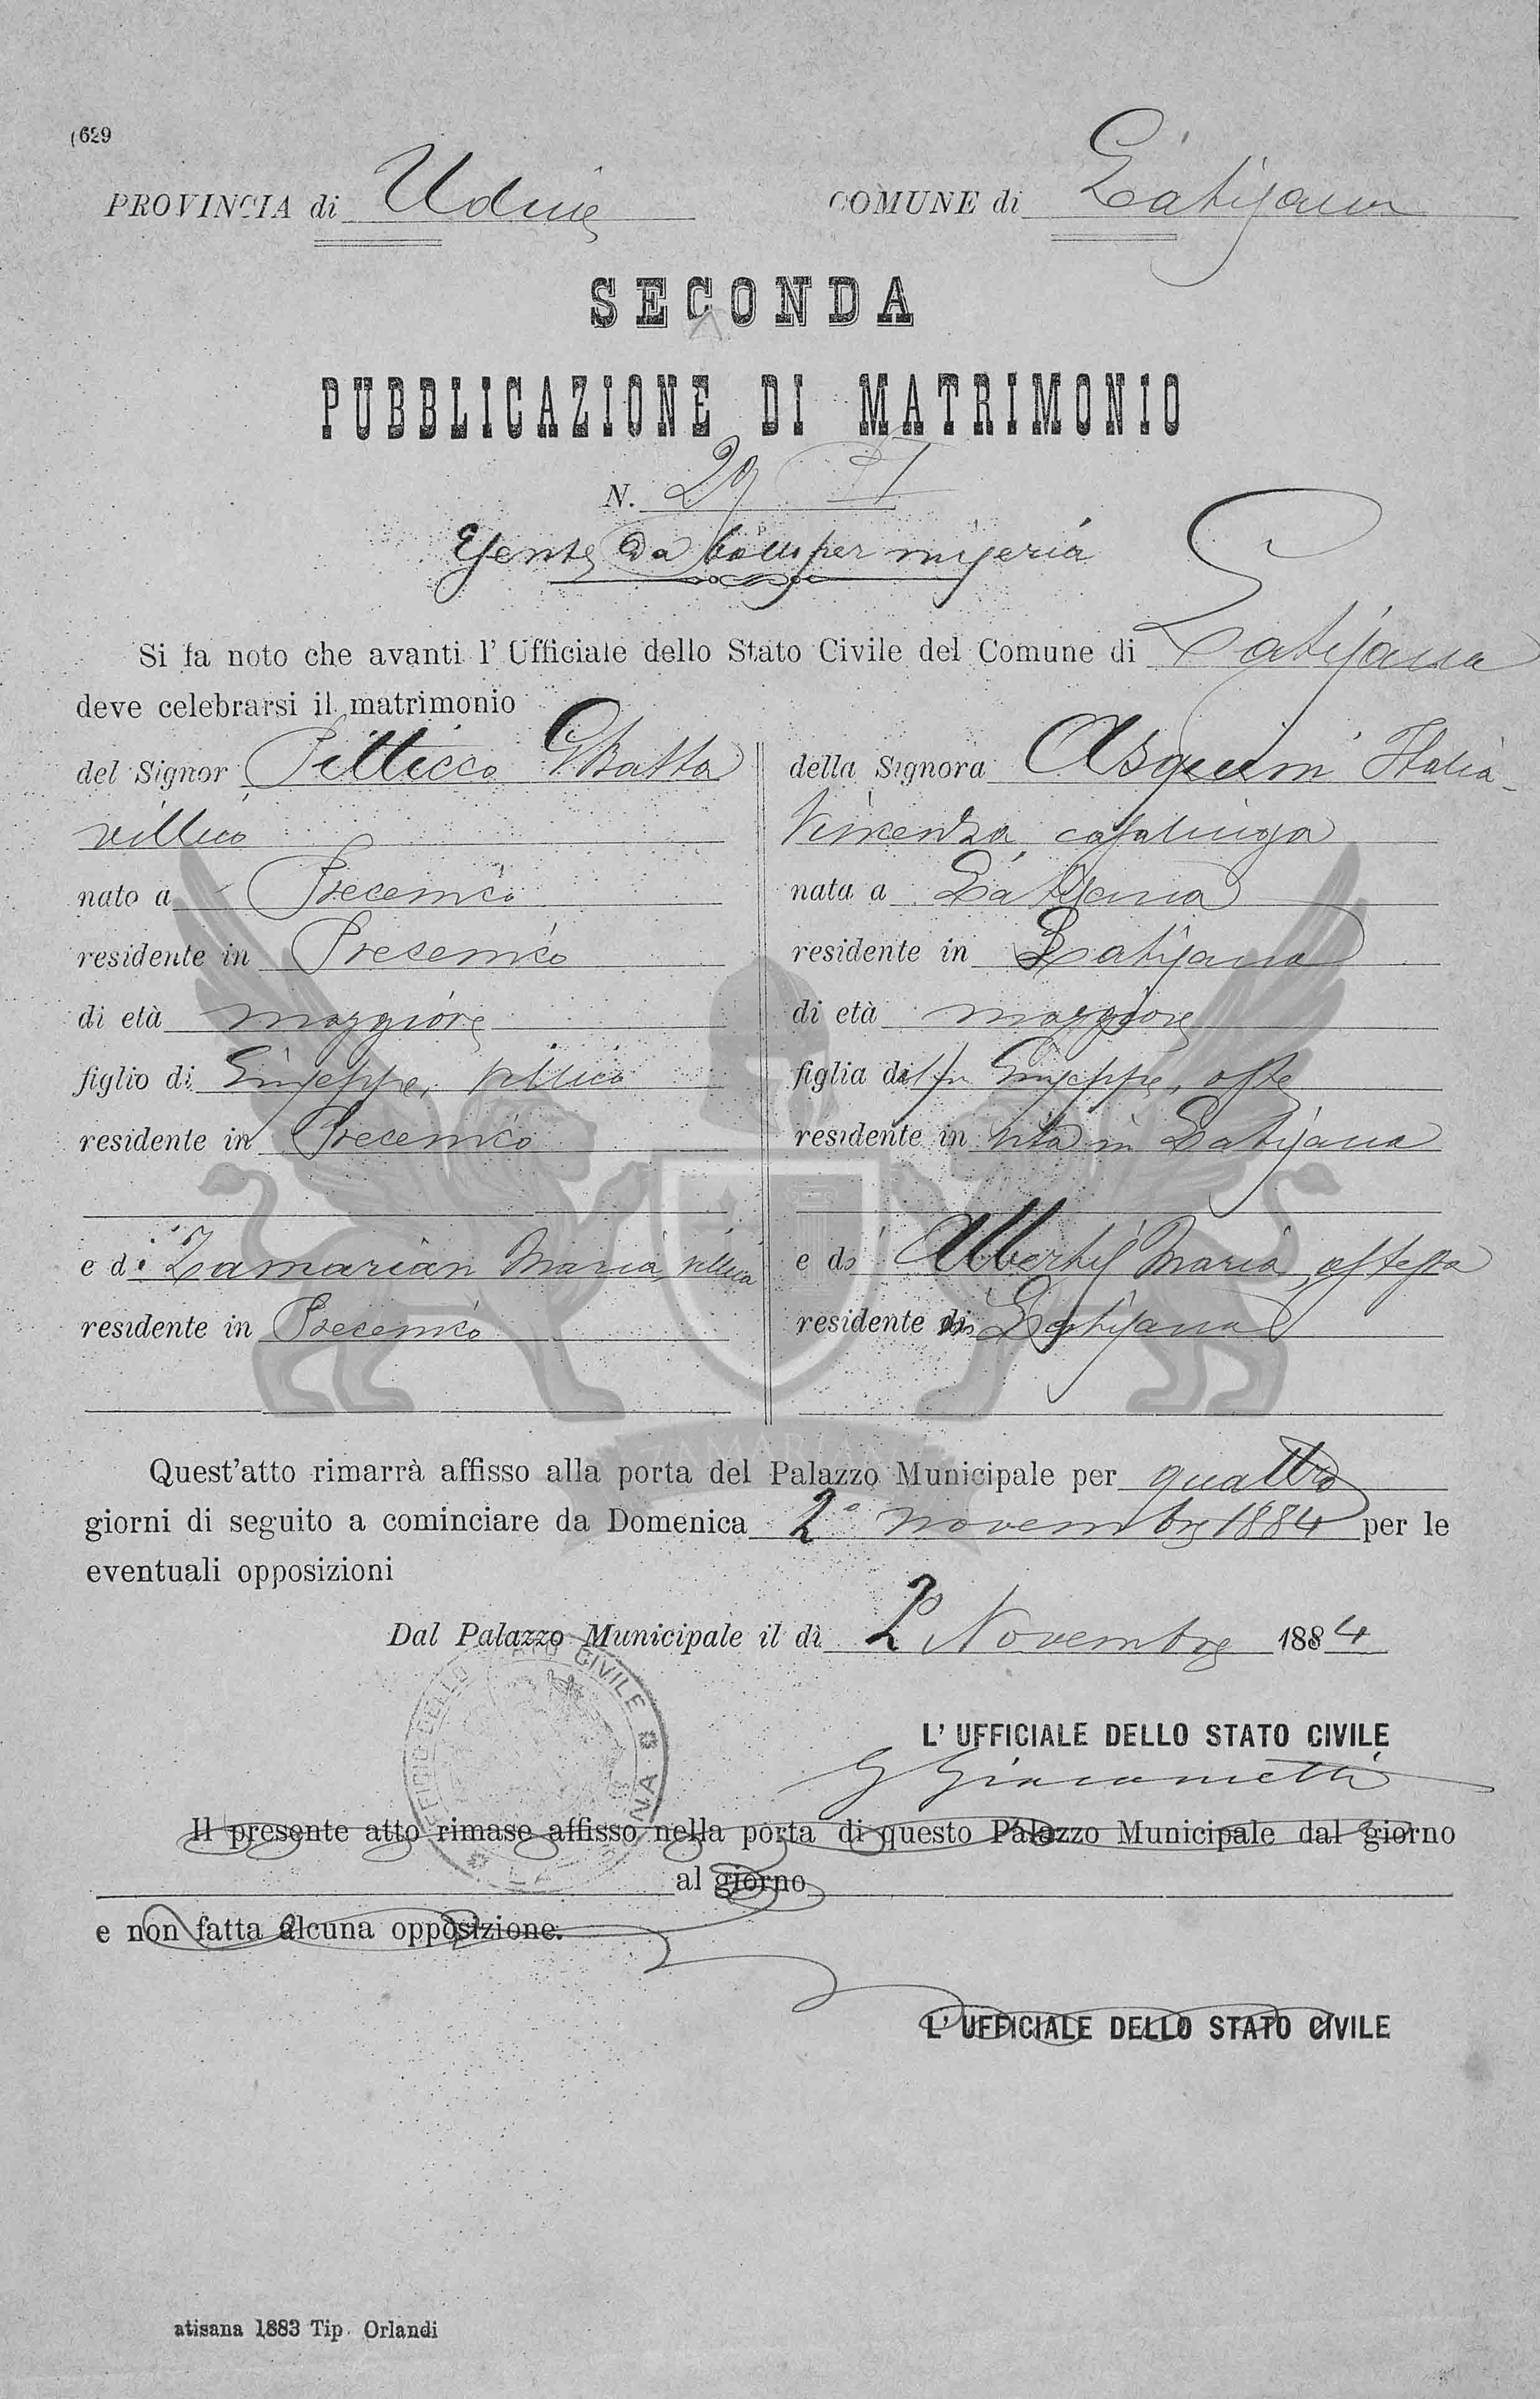 (629
PROVINCIA di Udine COMUNE di Latisana
SECONDA
PUBBLICAZIONE DI MATRIMONIO
N. 29
Esente da bollo per miseria
Si fa noto che avanti l' Ufficiale dello Stato Civile del Comune di Latisana
deve celebrarsi il matrimonio
del Signor Pitticco GBatta
villico
nato a Precenico
residente in Precenico
di età maggiore
figlio di Giuseppe, villico
residente in Precenico
e di Zamarian Maria, villica
residente in Precenico
della Signora Asquini Italia
Vincenza casalinga
nata a Latisana
residente in Latisana
di età maggiore
figlia del fu Giuseppe, oste
residente in vita in Latisana
e di Alberti Maria ostessa
residente in Latisana
ZAMARIAN
Quest'atto rimarrà affisso alla porta del Palazzo Municipale per quattro
giorni di seguito a cominciare da Domenica 2 novembre 1884 per le
eventuali opposizioni
Dal Palazzo Municipale il dì 2 Novembre 1884
L' UFFICIALE DELLO STATO CIVILE
G Giacometti
UFFICIO DELLO STATO CIVILE LATISANA
Il presente atto rimase affisso nella porta di questo Palazzo Municipale dal giorno
al giorno
e non fatta alcuna opposizione.
L' UFFICIALE DELLO STATO CIVILE
atisana 1883 Tip. Orlandi